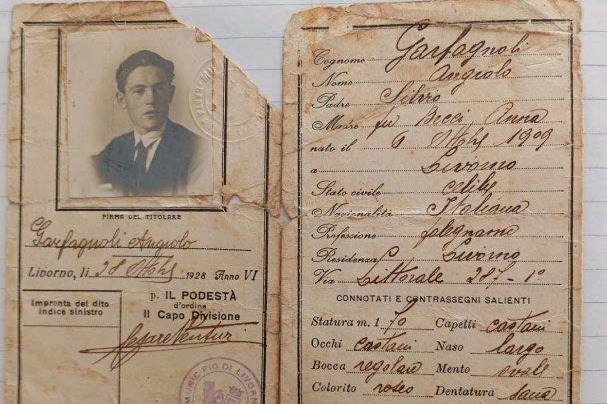 FIRMA DEL TITOLARE
Garfagnoli Angiolo
Livorno, li 28 Ottobre 1928 Anno VI
Impronta del dito
indice sinistro
p. IL PODESTÀ
d'ordine
Il Capo Divisione
Cesare Venturi
MUNICIPIO DI LIVORNO
Cognome Garfagnoli
Nome Angiolo
Padre
Madre fu Bicci Anna
nato il 6 Ottobre 1909
a Livorno
Stato civile celibe
Nazionalità Italiana
Professione falegname
Residenza Livorno
Via Littorale 287-1°
CONNOTATI E CONTRASSEGNI SALIENTI
Statura m. 1 70 Capelli castani
Occhi castani Naso largo
Bocca regolare Mento ovale
Colorito roseo Dentatura sana